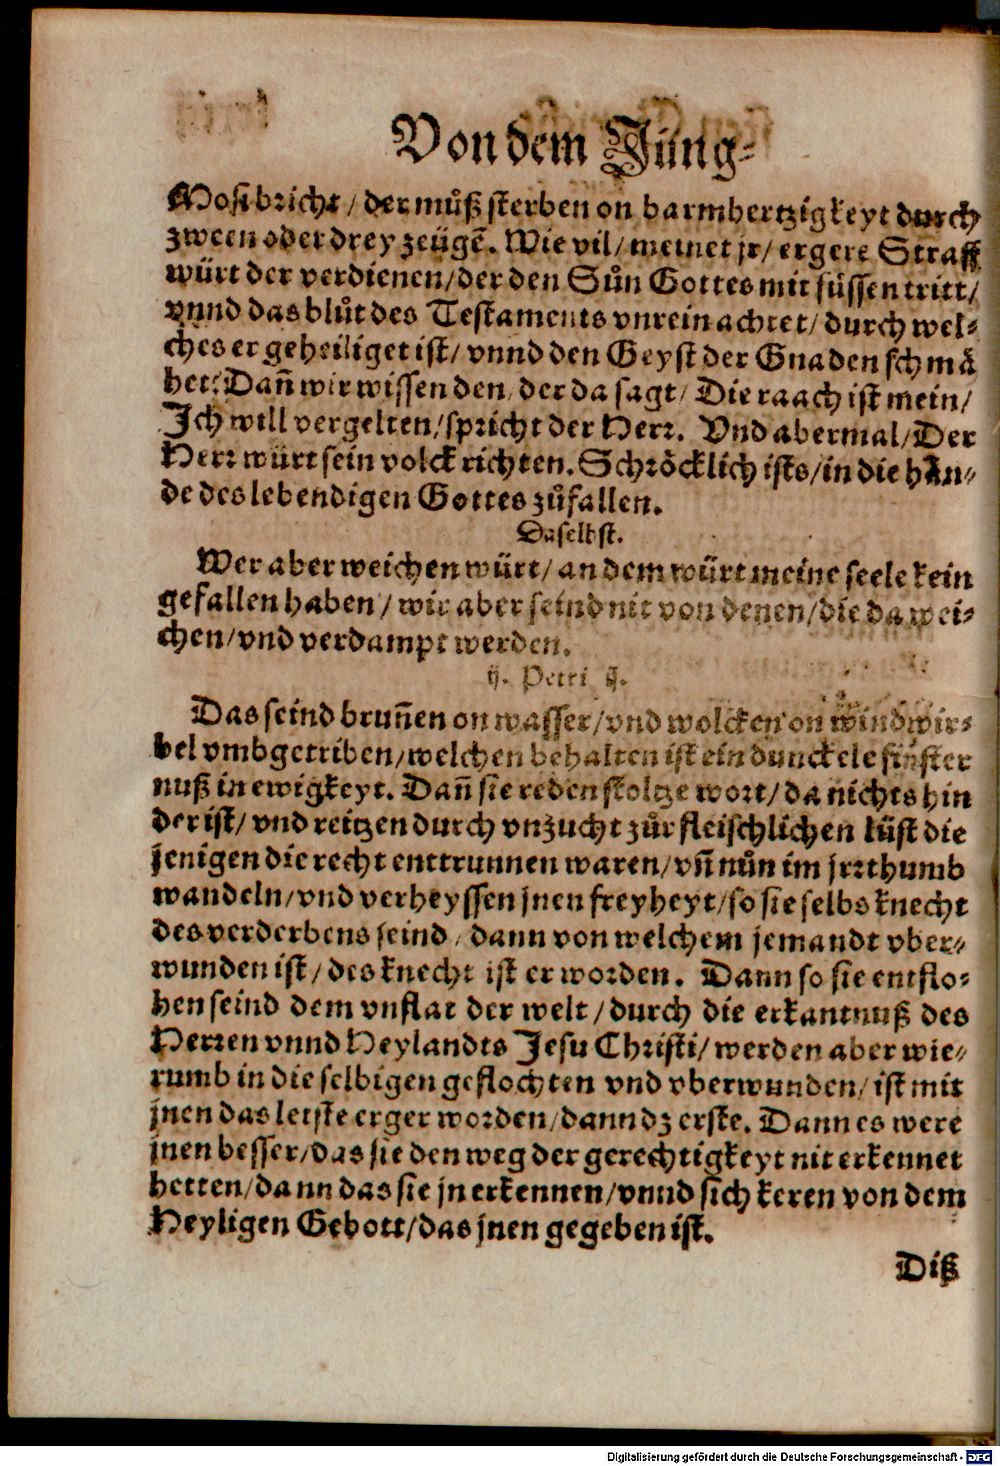 Von dem Jüng-
Mosi bricht / der můß sterben on barmhertzigkeyt durch
zween oder drey zeügẽ. Wie vil / meinet jr / ergere Straff
würt der verdienen / der den Sůn Gottes mit füssen tritt /
vnnd das blůt des Testaments vnrein achtet / durch wel-
ches er geheiliget ist / vnnd den Geyst der Gnaden schmä
het? Dañ wir wissen den / der da sagt / Die raach ist mein /
Ich will vergelten / spricht der Herr. Vnd abermal / Der
Herr würt sein volck richten. Schröcklich ists / in die hän-
de des lebendigen Gottes zůfallen.
Daselbst.
Wer aber weichen würt / an dem würt meine seele kein
gefallen haben / wir aber seind nit von denen / die da wei-
chen / vnd verdampt werden.
ij. Petri ij.
Das seind bruñen on wasser / vnd wolcken on windwir-
bel vmbgetriben / welchen behalten ist ein dunckele finster
nuß in ewigkeyt. Dañ sie reden stoltze wort / da nichts hin
der ist / vnd reitzen durch vnzucht zůr fleischlichen lüst die
jenigen die recht enttrunnen waren / vñ nůn im jrrthumb
wandeln / vnd verheyssen jnen freyheyt / so sie selbs knecht
des verderbens seind / dann von welchem jemandt vber-
wunden ist / des knecht ist er worden. Dann so sie entflo-
hen seind dem vnflat der welt / durch die erkantnuß des
Herren vnnd Heylandts Jesu Christi / werden aber wie-
rumb in die selbigen geflochten vnd vberwunden / ist mit
jnen das letste erger worden / dann dz erste. Dann es were
jnen besser / das sie den weg der gerechtigkeyt nit erkennet
hetten / dann das sie jn erkennen / vnnd sich keren von dem
Heyligen Gebott / das jnen gegeben ist.
Diß
Digitalisierung gefördert durch die Deutsche Forschungsgemeinschaft - DFG